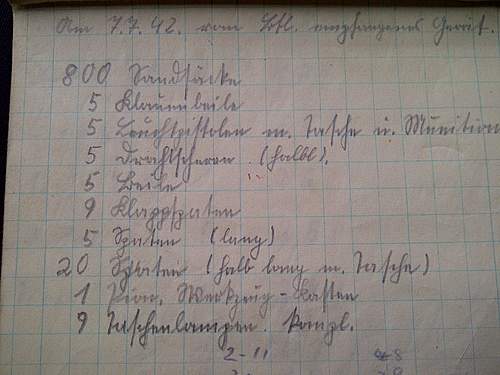 Am 7.7.42. vom Btl. empfangenes Gerät.
800 Sandsäcke
5 Klauenbeile
5 Leuchtpistolen m. Tasche u. Munition
5 Drahtscheren. (halbl).
5 Beile
9 Klappspaten
5 Spaten (lang)
20 Spaten (halb lang m. Tasche)
1 Pion. Werkzeug-Kasten
9 Taschenlampen. kompl.
2-11 8